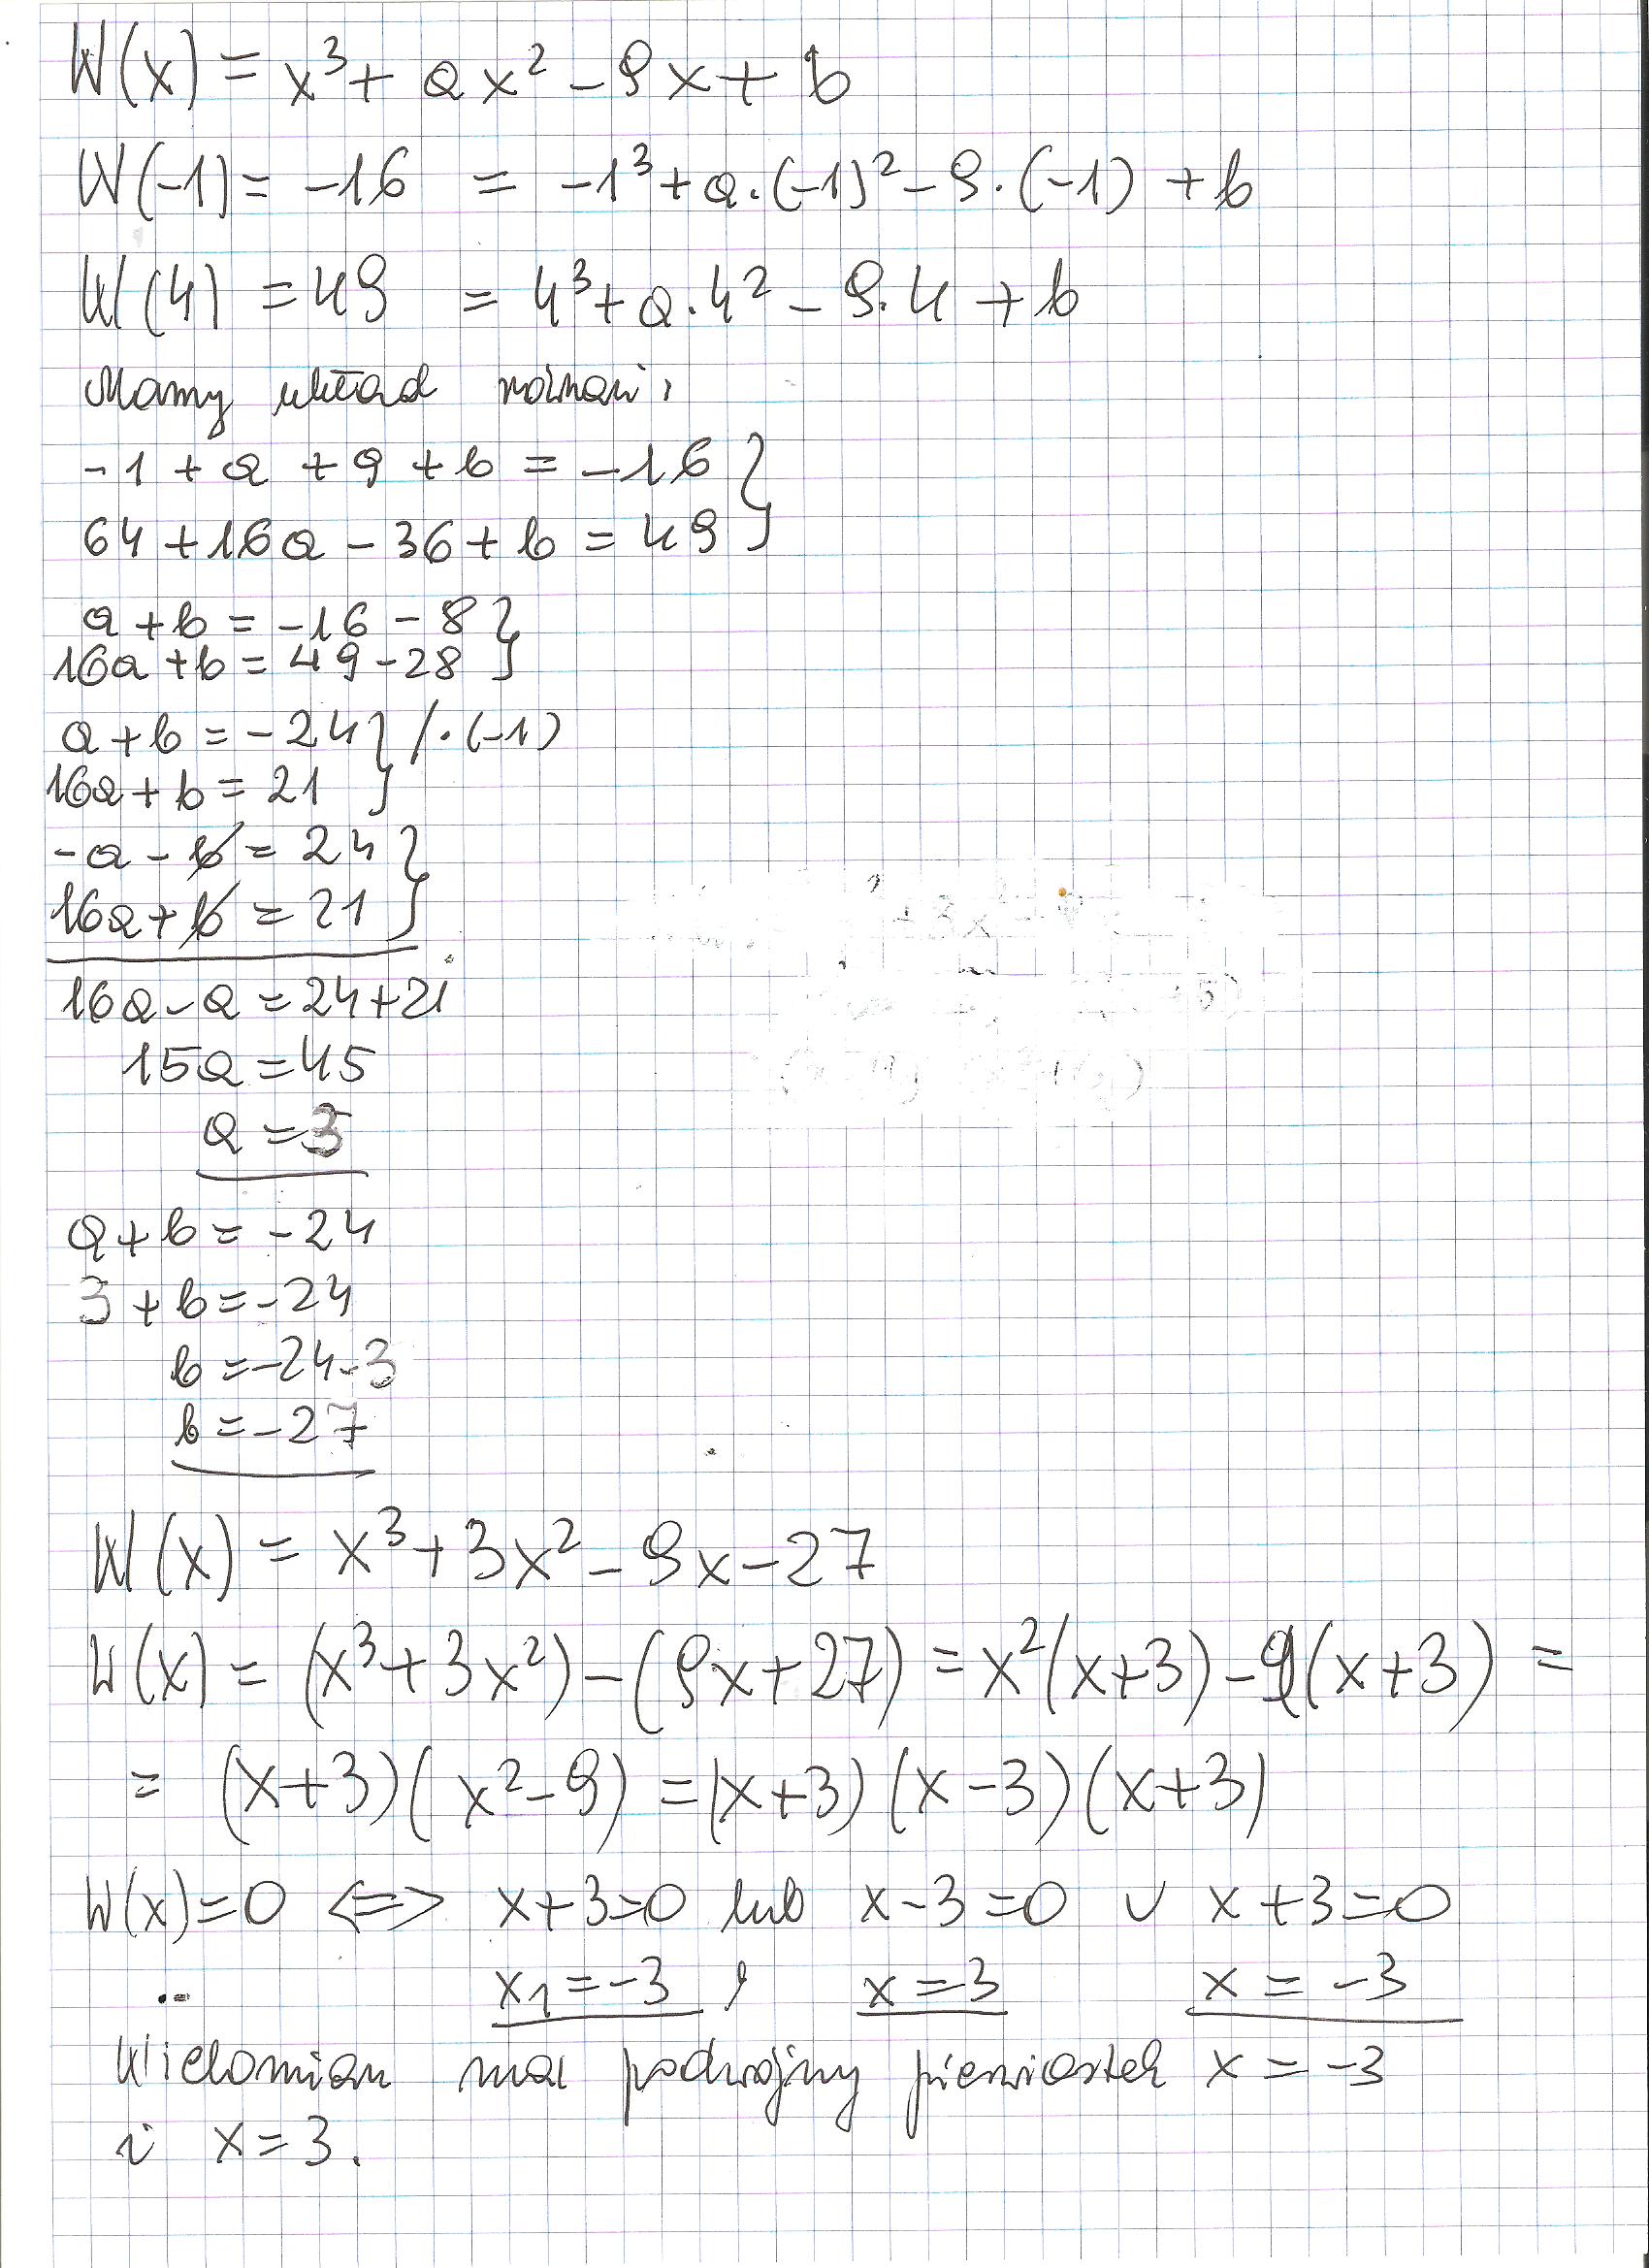 W(x) = x³ + ax² - 9x + b
W(-1) = -16 = -1³ + a·(-1)² - 9·(-1) + b
W(4) = 49 = 4³ + a·4² - 9·4 + b
Mamy układ równań:
-1 + a + 9 + b = -16 }
64 + 16a - 36 + b = 49 }
a + b = -16 - 8 }
16a + b = 49 - 28 }
a + b = -24 } /·(-1)
16a + b = 21 }
-a - b = 24 }
16a + b = 21 }
16a - a = 24 + 21
15a = 45
a = 3
a + b = -24
3 + b = -24
b = -24 - 3
b = -27
W(x) = x³ + 3x² - 9x - 27
W(x) = (x³ + 3x²) - (9x + 27) = x²(x+3) - 9(x+3) =
= (x+3)(x² - 9) = (x+3)(x-3)(x+3)
W(x) = 0 <=> x+3=0 lub x-3=0 ∨ x+3=0
x₁ = -3 , x = 3 x = -3
Wielomian ma podwójny pierwiastek x = -3
i x = 3.